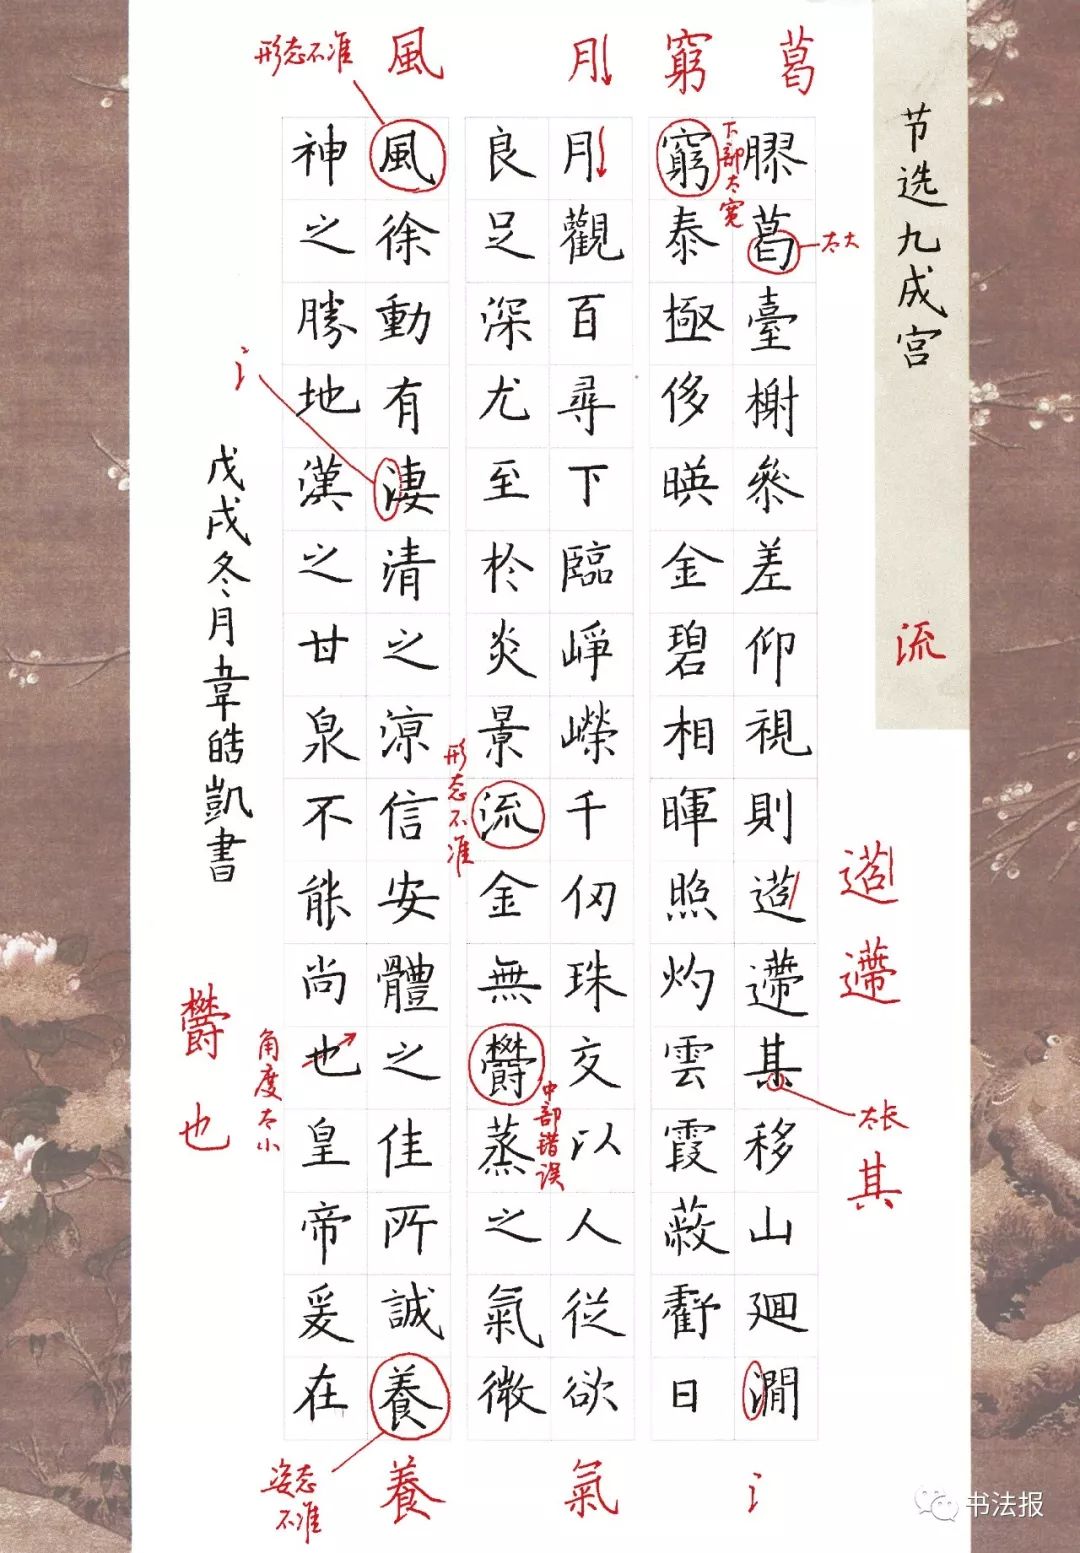 节选九成宫
膠葛臺榭叅差仰視則迢遰其移山廻澗
窮泰極侈暎金碧相暉照灼雲霞蔽虧日
月觀百尋下臨崢嶸千仞珠交以人從欲
良足深尤至於炎景流金無欝蒸之氣微
風徐動有淒清之涼信安體之佳所誠養
神之勝地漢之甘泉不能尚也皇帝爰在
戊戌冬月韋皓凱書
葛
窮
月
風
形态不准
下部太宽
太大
流
迢
遰
太长
其
形态不准
中部错误
欝
也
角度太小
氵
氵
氣
養
姿态
不准
书法报